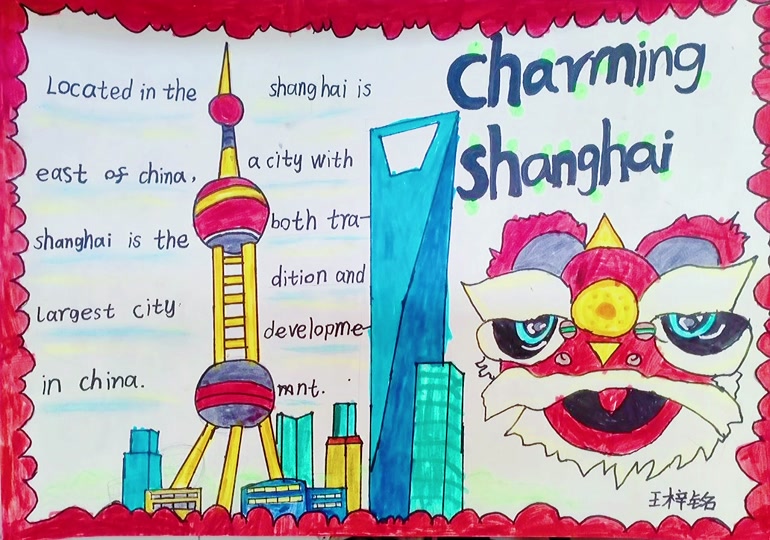 charming
shanghai
Located in the
east of china,
shanghai is the
largest city
in china.
shanghai is
a city with
both tra-
dition and
developme-
mnt.
王梓铭